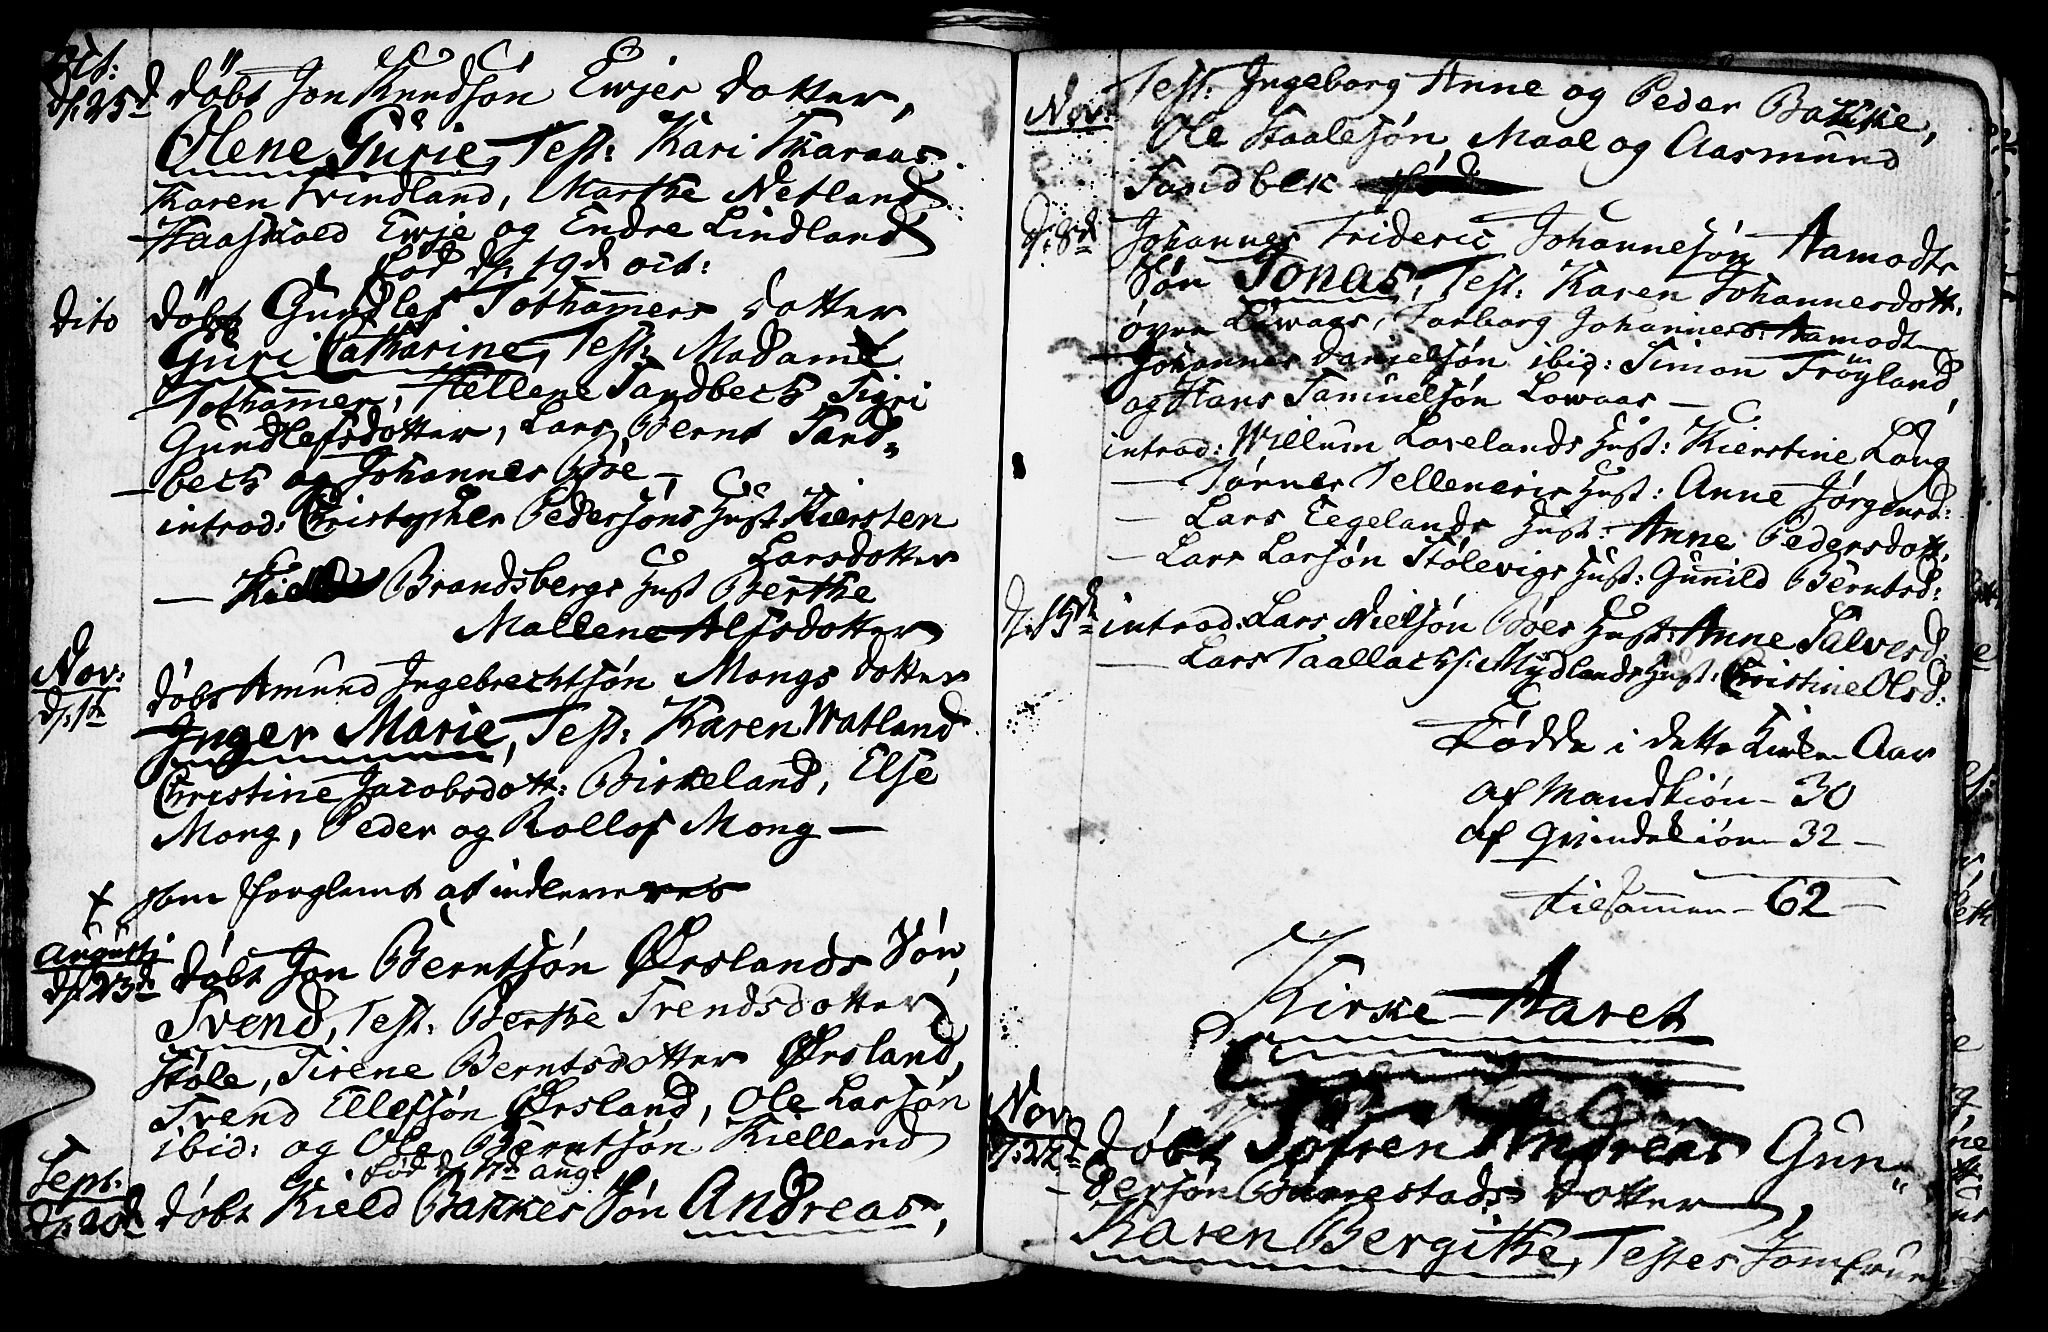 Oct:
d: 25d döbt Jon Knudsön Ewjes dotter,
Olene Gurie, Test: Kari Skaraas
Karen Svindland, Marthe Netland
Haaskiold Ewje og Endre Lindland
föd d: 19d oct:
dito döbt Gundlef Tothamers dotter
Guri Catharine, Test: Madame
Tothamer, Hellene Sandbech Sigri
Gundlefsdotter, Lars Bernt Sand„
bech og Johannes Böe –
introd: Christopher Pedersöns Hust Kiersten
Larsdotter
— Brandsbergs Hust Berthe
Mallene Alfsdotter
Nov:
d: 1t döbt Amund Ingebrechtsön Mongs dotter
Inger Marie, Test: Karen Watland
Christine Jacobsdott: Birkeland, Else
Mong, Peder og Rollof Mong —
+ som forglemt at indleveres
Augusti
d: 23d döbt Jon Berntsön Ørslands Sön
Svend, Test: Berthe Svendsdotter
Stöle, Sirene Berntsdotter Ørsland,
Svend Ellefsön Ørsland, Ole Larsön
ibid: og Ole Berntsön Kielland
föd d 17d aug:
Sept:
d: 20d döbt Kield Bakkes Sön Andreas,
Nov: Test: Ingeborg Anne og Peder Bakke,
Ole Staalesön Maal og Aasmund
Sandbek
d: 8d Johannes Frideric Johannesön Aamodts
Sön Jonas, Test: Karen Johannesdott:
övre Lowaas, Torborg Johannesd: Aamodt
Johannes Danielsön ibid: Simon Tröyland,
og Hans Samuelsön Lowaas —
introd: Willum Lavelands Hust: Kierstine Lang
— Törnes Telleneses Hust: Anne Jörgensd:
— Lars Eegelands Hust: Anne Pedersdott,
— Lars Larsön Stölevigs Hust: Gunild Berntsd:
d: 15d introd: Lars Nielsön Böes Hust: Anne Salvesd
— Lars Taallachs: Mydlands Hust: Christine Olsd:
Födde i dette Kirke Aar
af Mandkiön – 30
af Qvindekiön 32 –
tilsammen – 62 –
Kirke-Aaret
Nov
d: 22d döbt Sofren Andreas Gun„
dersön Barestads dotter,
Karen Bergithe, Testes Jomfruen